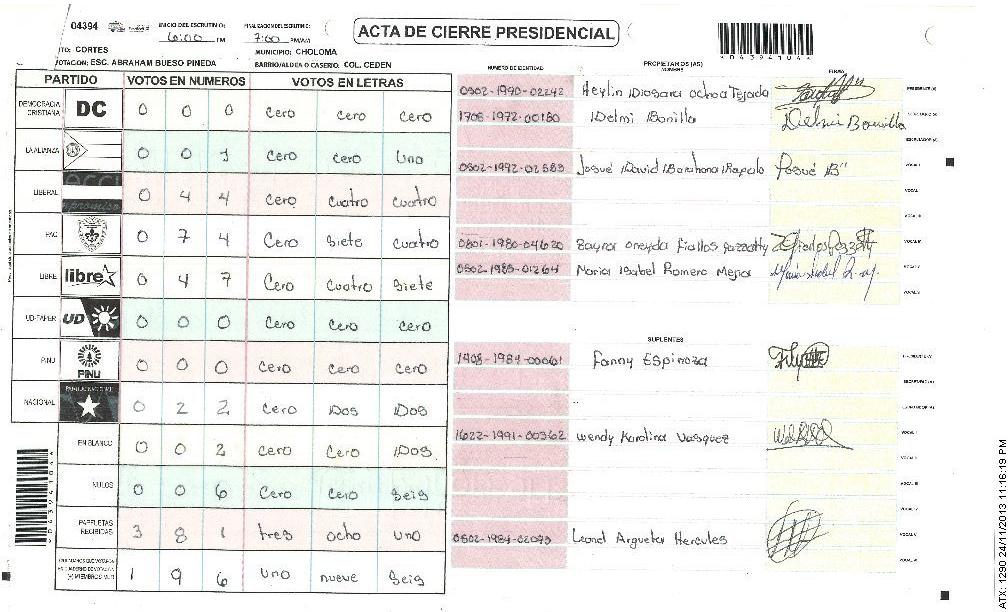 04394 INICIO DEL ESCRUTINIO: 6:00 PM FINALIZACION DEL ESCRUTINIO: 7:00 PM/AM
ACTA DE CIERRE PRESIDENCIAL
CORTES
MUNICIPIO: CHOLOMA
VOTACION: ESC. ABRAHAM BUESO PINEDA BARRIO/ALDEA O CASERIO: COL. CEDEN
9043941044
PARTIDO VOTOS EN NUMEROS VOTOS EN LETRAS
DEMOCRACIA CRISTIANA DC 0 0 0 Cero Cero Cero
LA ALIANZA 0 0 1 Cero Cero Uno
LIBERAL 0 4 4 Cero Cuatro Cuatro
PAC 0 7 4 Cero Siete Cuatro
LIBRE libre 0 4 7 Cero Cuatro Siete
UD-FAPER UD 0 0 0 Cero Cero Cero
PINU PINU 0 0 0 Cero Cero Cero
NACIONAL 0 2 2 Cero Dos Dos
EN BLANCO 0 0 2 Cero Cero Dos
NULOS 0 0 6 Cero Cero Seis
PAPELETAS RECIBIDAS 3 8 1 tres ocho uno
1 9 6 Uno nueve Seis
NUMERO DE IDENTIDAD PROPIETARIOS (AS) NOMBRE FIRMA
0502-1990-02242 Heylin Diosara Ochoa Tejada
1708-1972-00180 Delmi Bonilla Delmi Bonilla
0502-1992-02583 Josué David Barahona Rapalo Josué B"
0801-1980-04620
0502-1985-01264 Maria Isabel Romero Mejia
SUPLENTES
1408-1984-00061 Fanny Espinoza
1622-1991-00362 Wendy Karolina Vasquez
0502-1984-02073 Leonel Argueta Hercules
ATX: 1290 24/11/2013 11:16:19 PM